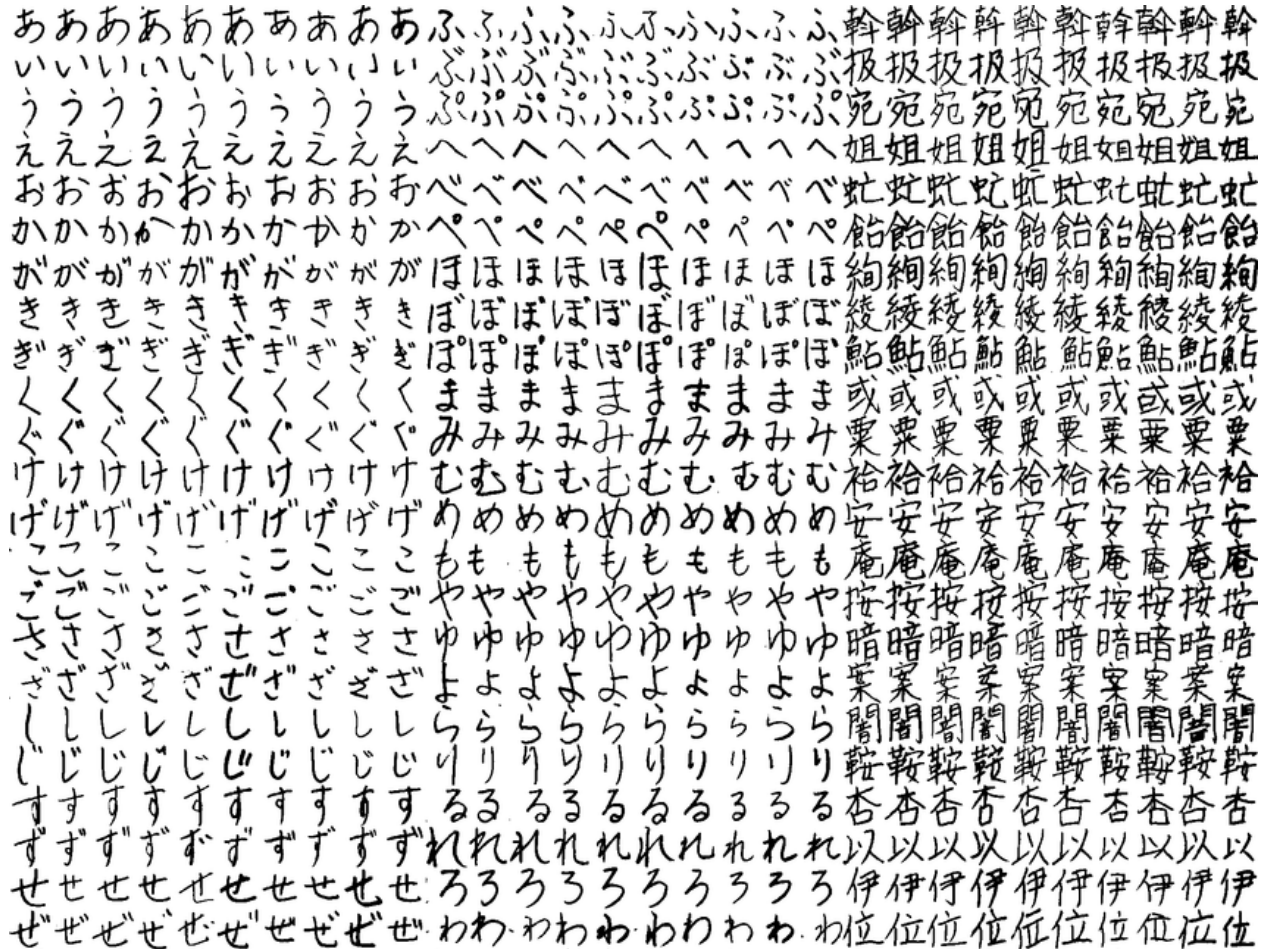 ああああああああああふふふふふふふふふふ斡斡斡斡斡斡斡斡斡斡
いいいいいいいいいいぶぶぶぶぶぶぶぶぶぶ扱扱扱扱扱扱扱扱扱扱
ううううううううううぷぷぷぷぷぷぷぷぷぷ宛宛宛宛宛宛宛宛宛宛
ええええええええええへへへへへへへへへへ姐姐姐姐姐姐姐姐姐姐
おおおおおおおおおおべべべべべべべべべべ虻虻虻虻虻虻虻虻虻虻
かかかかかかかかかかぺぺぺぺぺぺぺぺぺぺ飴飴飴飴飴飴飴飴飴飴
ががががががががががほほほほほほほほほほ絢絢絢絢絢絢絢絢絢絢
ききききききききききぼぼぼぼぼぼぼぼぼぼ綾綾綾綾綾綾綾綾綾綾
ぎぎぎぎぎぎぎぎぎぎぽぽぽぽぽぽぽぽぽぽ鮎鮎鮎鮎鮎鮎鮎鮎鮎鮎
くくくくくくくくくくまままままままままま或或或或或或或或或或
ぐぐぐぐぐぐぐぐぐぐみみみみみみみみみみ粟粟粟粟粟粟粟粟粟粟
けけけけけけけけけけむむむむむむむむむむ袷袷袷袷袷袷袷袷袷袷
げげげげげげげげげげめめめめめめめめめめ安安安安安安安安安安
ここここここここここもももももももももも庵庵庵庵庵庵庵庵庵庵
ごごごごごごごごごごやややややややややや按按按按按按按按按按
ささささささささささゆゆゆゆゆゆゆゆゆゆ暗暗暗暗暗暗暗暗暗暗
ざざざざざざざざざざよよよよよよよよよよ案案案案案案案案案案
ししししししししししらららららららららら闇闇闇闇闇闇闇闇闇闇
じじじじじじじじじじりりりりりりりりりり鞍鞍鞍鞍鞍鞍鞍鞍鞍鞍
すすすすすすすすすするるるるるるるるるる杏杏杏杏杏杏杏杏杏杏
ずずずずずずずずずずれれれれれれれれれれ以以以以以以以以以以
せせせせせせせせせせろろろろろろろろろろ伊伊伊伊伊伊伊伊伊伊
ぜぜぜぜぜぜぜぜぜぜわわわわわわわわわわ位位位位位位位位位位